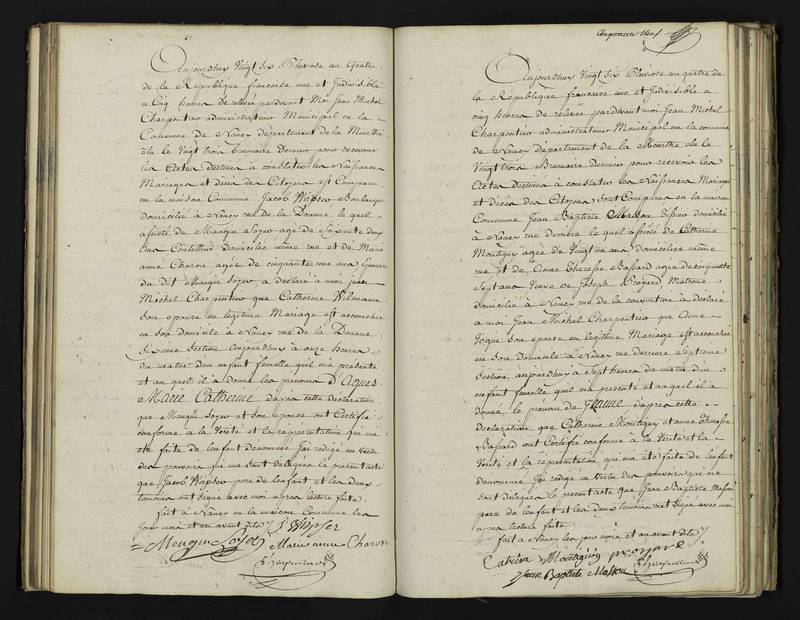 Aujourdhuy Vingt Six Pluviose an Quatre
de la République française une et Indivisible
a Cinq heures de relevée pardevant Moi Jean Michel
Charpentier administrateur Municipal en la
Commune de Nancy département de la Meurthe
élu le Vingt trois brumaire Dernier pour recevoir
les Actes destinés à constater les Naissances
Mariages et décès des Citoyens est Comparu
en la maison Commune Jacob Wipser Boulanger
domicilié à Nancy rue de la Douane le quel
assisté de Mangin Soyer agé de Soixante deux
ans Coutellier Domicilié même rue et de Marie
anne Charon agée de cinquante une ans Epouse
du dit Mangin Soyer a déclaré à moi jean
Michel Charpentier que Catherine
Son epouse en légitime Mariage est accouchée
en son Domicile à Nancy rue de la Douane
Sixieme Section Aujourdhuy à onze heures
du matin dun enfant femelle quil ma présenté
et au quel il a donné les prenoms D'Agnes
Marie Catherine d'après cette déclaration
que Mangin Soyer et Son epouse ont Certifié
conforme a la Verité et la représentation qui ma
été faite de lenfant denommé Jai rédigé en Vertu
des pouvoirs qui me sont delegués le présent acte
que Jacob Wipser pere de lenfant et les deux
temoins ont signé avec moi apres lecture faite.
fait à Nancy en la maison Commune les
Jour mois et an avant dits J Wipser
Mengin Soyer Marie anne Charon
Charpentier
Cinquante Neuf
Aujourdhuy Vingt Six Pluviose an quatre de
la République française une et Indivisible à
cinq heures de relevée pardevant moi Jean Michel
Charpentier administrateur Municipal en la commune
de Nancy Département de la Meurthe élu le
Vingt trois Brumaire Dernier pour recevoir les
Actes Destinés à constater les Naissances Mariages
et décès des Citoyens Sont Comparus en la maison
Commune Jean Baptiste Masson domicilié
à Nancy rue derriere le quel assisté de Catherine
Montigny agée de Vingt un ans domiciliée même
rue et de Anne Therese Bassard agée de cinquante
Sept ans Veuve de Joseph Proyard Matrone
domiciliée à Nancy rue de la constitution a déclaré
a moi Jean Michel Charpentier que Anne
Son epouse en légitime Mariage est accouchée
en Son Domicile à Nancy rue derriere Septieme
Section aujourdhuy à Sept heures du matin dun
enfant femelle quil ma présenté et au quel il a
donné le prenom de Jeanne d'apres cette
Declaration que Catherine Montigny et anne Therese
Bassard ont Certifié conforme à la Verité et la
Verité et la représentation qui ma été faite de lenfant
denommé Jai redigé en Vertu des pouvoirs qui me
sont délégués le present acte que Jean Baptiste Masson
pere de lenfant et les deux temoins ont Signé avec moi
apres lecture faite
fait à Nancy les jour mois et an avant dits
Catrine Montigny proyard
Jean Baptiste Masson Charpentier